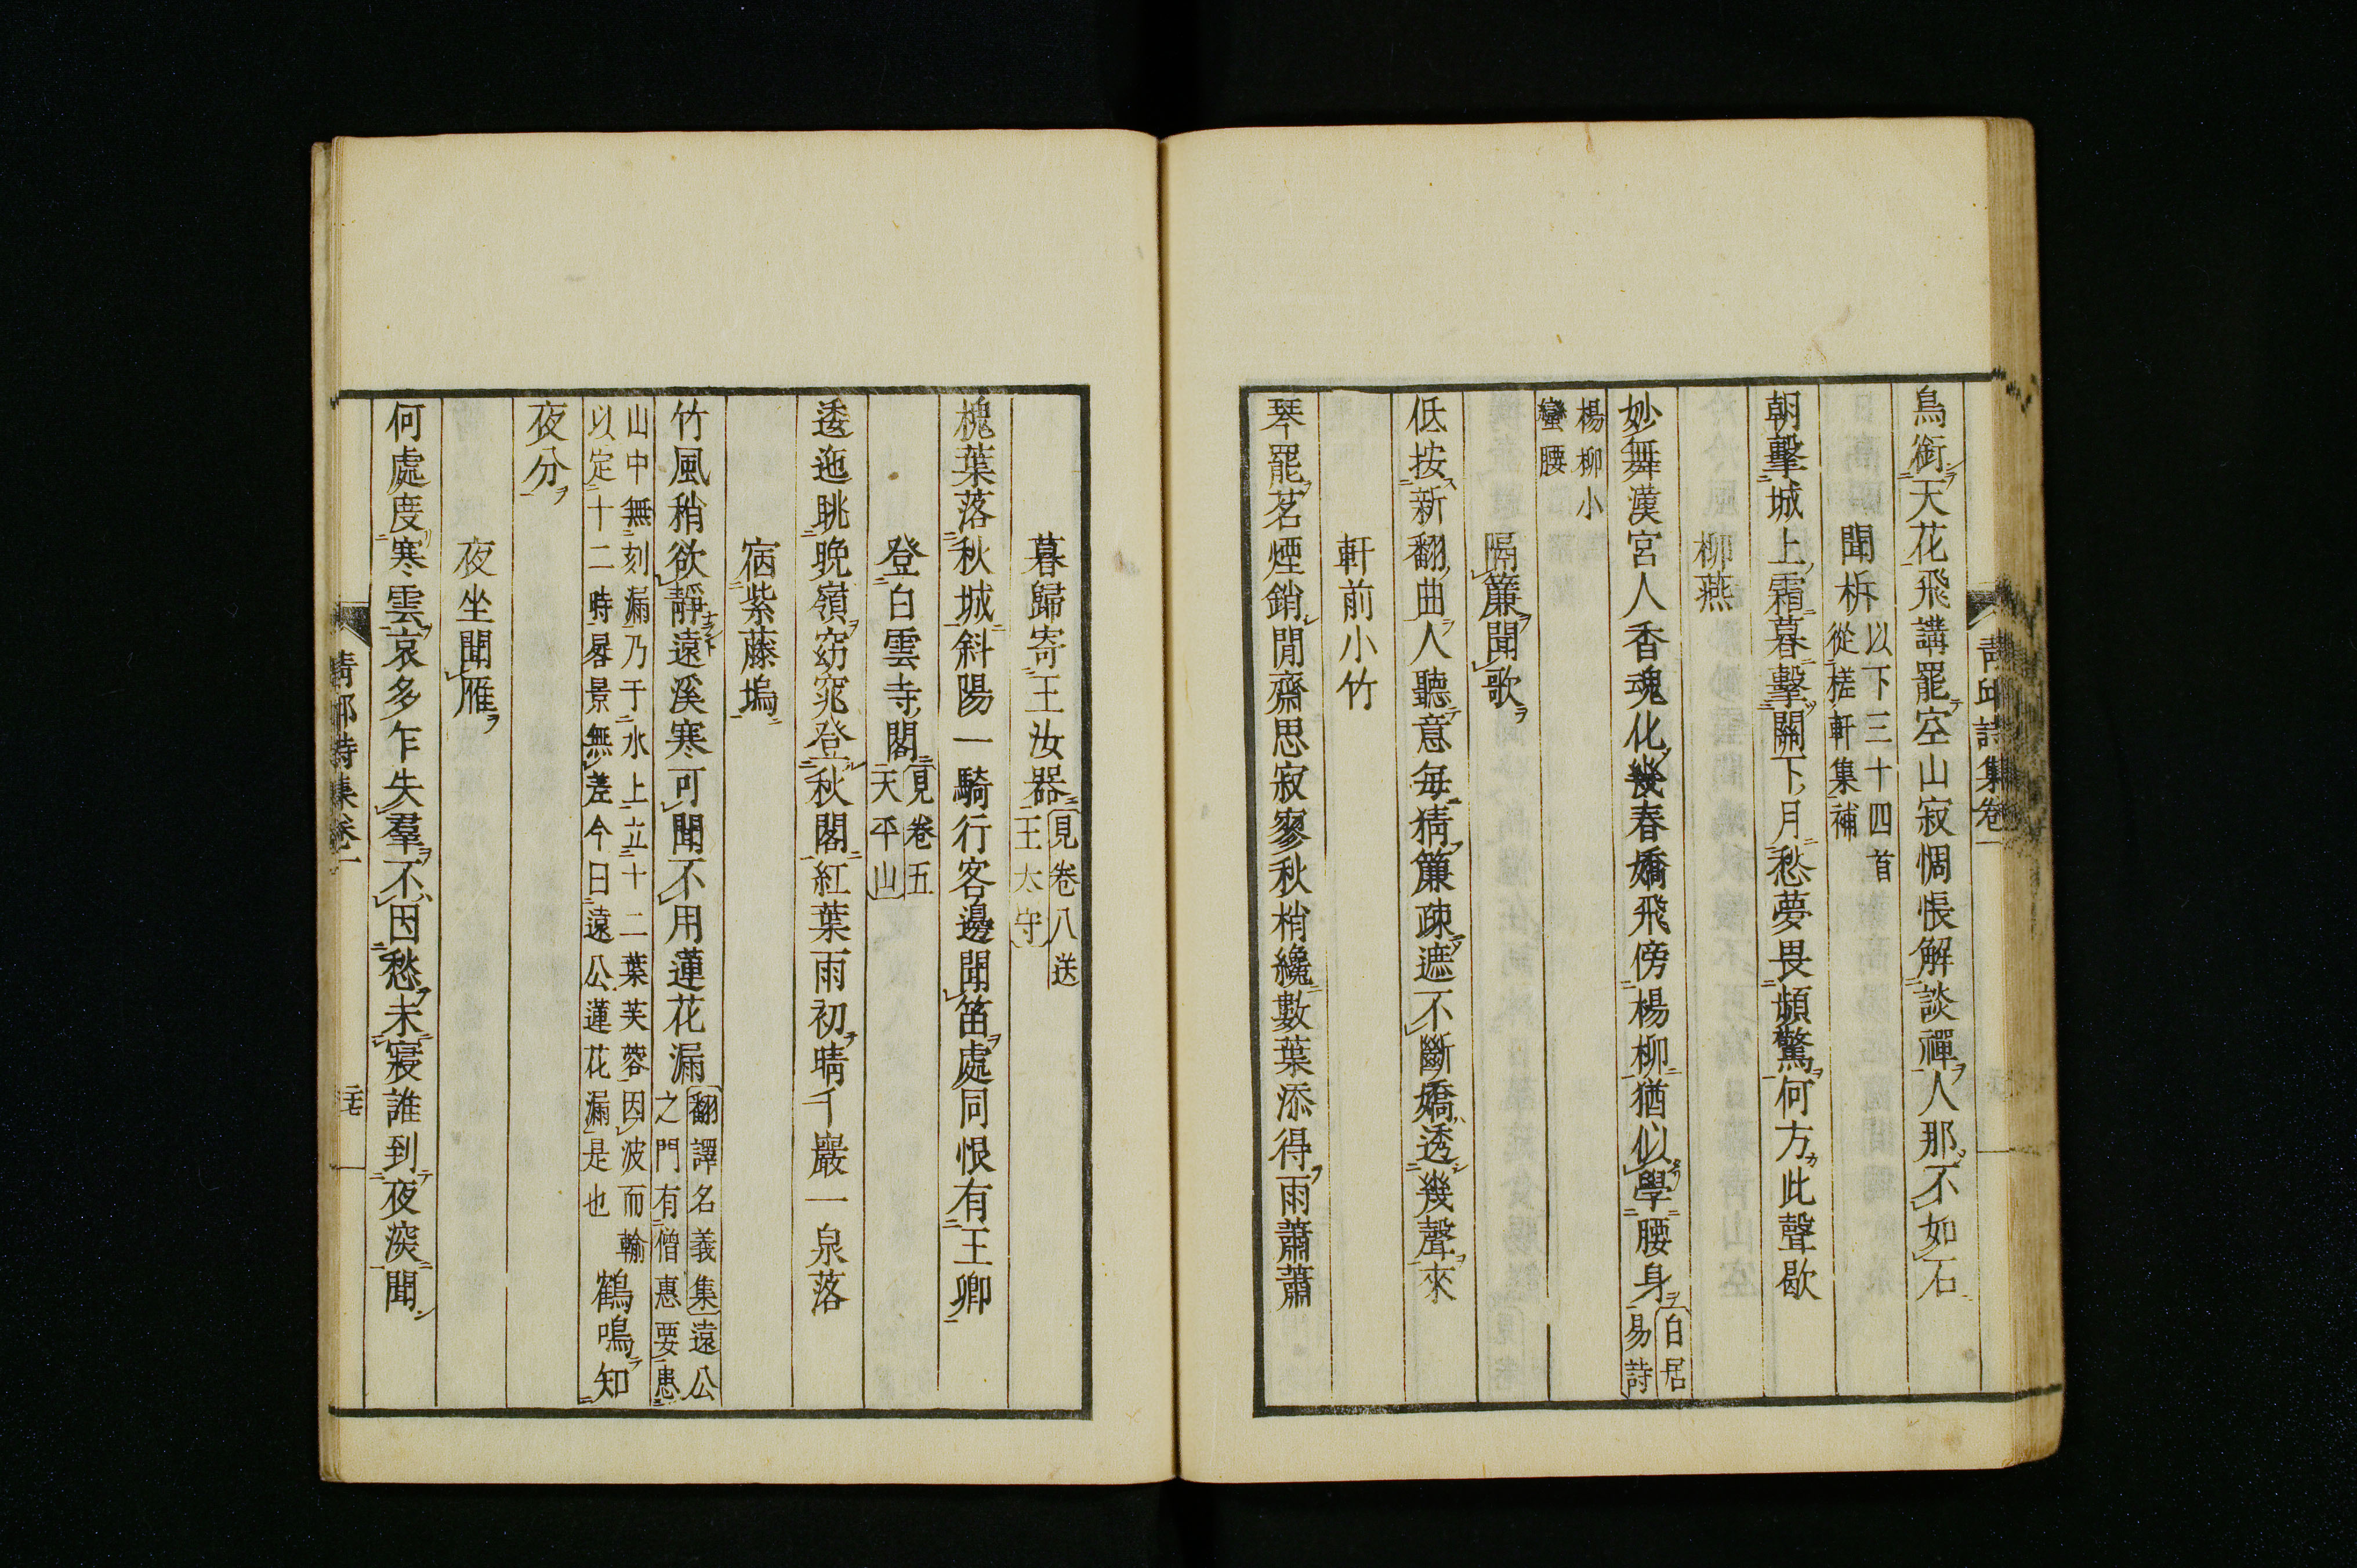 青邱詩集卷一
鳥銜天花飛講罷空山寂惆悵解談禪人那不如石
聞柝以下三十四首從槎軒集補
朝擊城上霜暮擊關下月愁夢畏頻驚何方此聲歇
柳燕
妙舞漢宮人香魂化幾春嬌飛傍楊柳猶似學腰身白居易詩
楊柳小蠻腰
隔簾聞歌
低按新翻曲人聽意每猜簾疎遮不斷嬌透幾聲來
軒前小竹
琴罷茗煙銷閒齋思寂寥秋梢纔數葉添得雨蕭蕭
暮歸寄王汝器見卷八送王太守
槐葉落秋城斜陽一騎行客邊聞笛處同恨有王卿
登白雲寺閣見卷五天平山
逶迤眺晚嶺窈窕登秋閣紅葉雨初晴千巖一泉落
宿紫藤塢
竹風稍欲靜遠溪寒可聞不用蓮花漏翻譯名義集遠公之門有僧惠要患
山中無刻漏乃于水上立十二葉芙蓉因波而輪以定十二時晷景無差今日遠公蓮花漏是也鶴鳴知
夜分
夜坐聞雁
何處度寒雲哀多乍失羣不因愁未寢誰到夜深聞
青邱詩集卷一